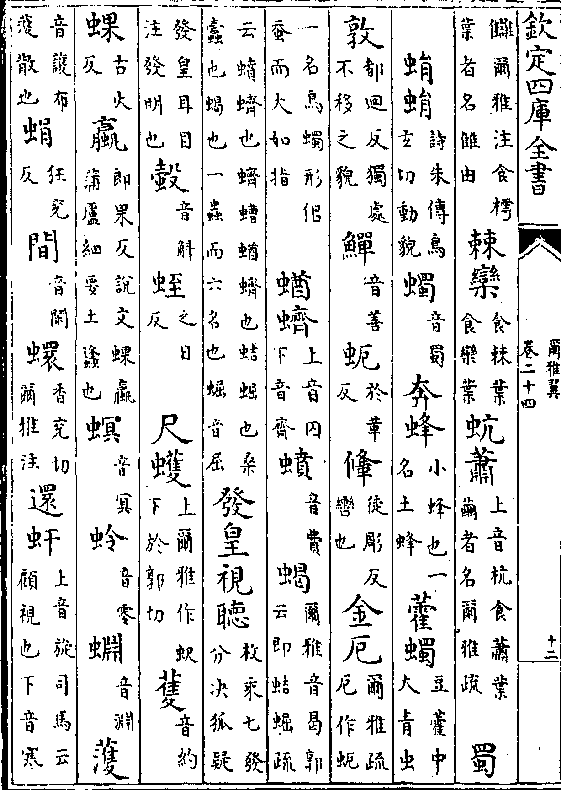 欽定四庫全書
爾雅翼
卷二十四
十二
雔爾雅注食樗葉者名雔由 棘欒食棘葉食欒葉 蚢蕭上音杭食蕭葉繭者名爾雅疏 蜀
蜎蜎詩朱傳烏玄切動貌 蠋音蜀 奔蜂小蜂也一名土蜂 藿蠋豆藿中大青虫
敦都迴反獨處不移之貌 鱓音善 蚅於革反 鞗徒彫反轡也 金厄爾雅疏厄作蚅
一名烏蠋形侣蚕而大如指 蝤蠐上音囚下音齊 蟦音費 蝎爾雅音曷郭云即蛣崛疏
云蠀螬也蠐螬蝤蠐也蛣崛也桑蠹也蝎也一蟲而六名也崛音屈 發皇視聽枚乘七發分决狐疑
發皇耳目注發明也 縠音斛 蛭之日反 尺蠖上爾雅作蚇下於郭切 蒦音約
蜾古火反 蠃即果反說文蜾蠃蒲盧細要土蠭也 螟音冥 蛉音零 蜵音淵 濩
音護布濩散也 蜎狂兖反 間音閑 蠉香兖切爾雅注 還虷上音旋司馬云顧視也下音寒